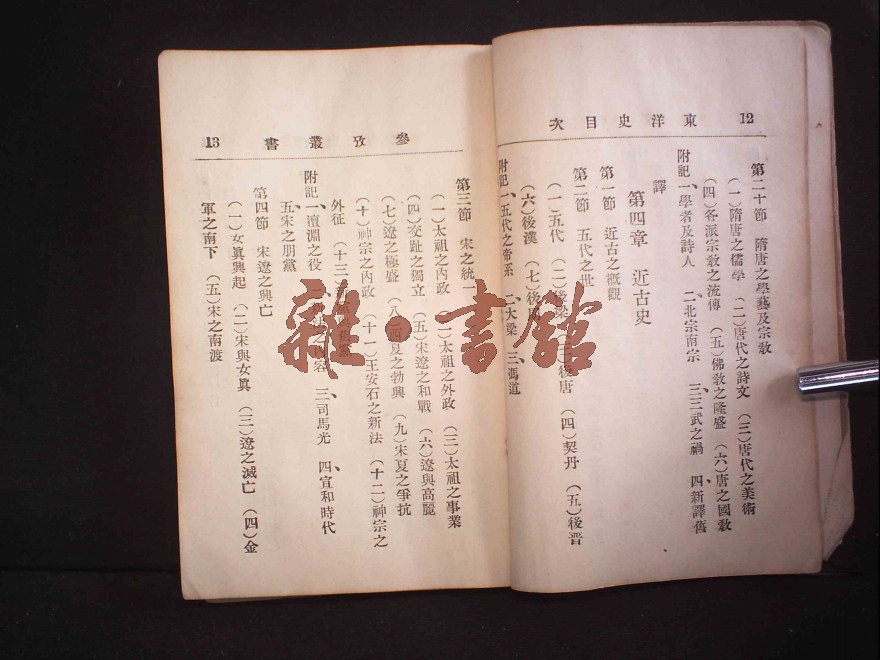 東洋史目次 12
第二十節 隋唐之學藝及宗敎
(一)隋唐之儒學 (二)唐代之詩文 (三)唐代之美術
(四)各派宗敎之流傳 (五)佛敎之隆盛 (六)唐之國敎
附記 一、學者及詩人 二、北宗南宗 三、三武之禍 四、新譯舊
譯
第四章 近古史
第一節 近古之槪觀
第二節 五代之世
(一)五代 (二)後梁 (三)後唐 (四)契丹 (五)後晉
(六)後漢 (七)後周
附記 一、五代之帝系 二、大梁 三、馮道
參攷叢書 13
第三節 宋之統一
(一)太祖之內政 (二)太祖之外政 (三)太祖之事業
(四)交趾之獨立 (五)宋遼之和戰 (六)遼與高麗
(七)遼之極盛 (八)西夏之勃興 (九)宋夏之爭抗
(十)神宗之內政 (十一)王安石之新法 (十二)神宗之
外征 (十三)
附記 一、澶淵之役 三、司馬光 四、宣和時代
五、宋之朋黨
第四節 宋遼之興亡
(一)女眞興起 (二)宋與女眞 (三)遼之滅亡 (四)金
軍之南下 (五)宋之南渡
雜·書館